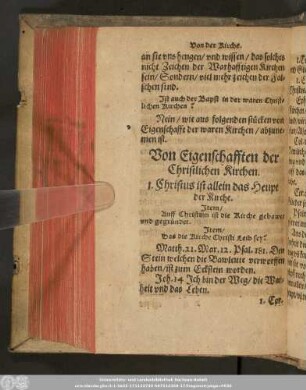 Von der Kirche.
an sie vns hengen/ vnd wissen/ das solches
nicht Zeichen der Warhafftigen Kirchen
sein/ Sondern/ viel mehr zeichen der Fal
schen sind.
Ist auch der Bapst in der waren Christ-
lichen Kirchen?
Nein/ wie aus folgenden stücken von
Eigenschafft der waren Kirchen/ abzune-
men ist.
Von Eigenschafften der
Christlichen Kirchen.
1. Christus ist allein das Heupt
der Kirche.
Item/
Auff Christum ist die Kirche gebawet
vnd gegründet.
Item/
Das die Kirche Christi Leib sey?
Matth. 21. Mar. 12. Psal. 181. Der
Stein welchen die Bawleute verworffen
haben/ ist zum Eckstein worden.
Joh. 14 Ich bin der Weg/ die War-
heit vnd das Leben.
1. Cor.